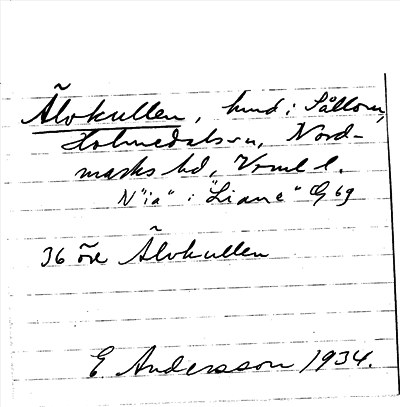 Älvkullen, hmd i Sållom,
Holmedals sn, Nord-
marks hd, Vrml l.
N "ia" : "Liane" G 69
36 öre Älvkullen
E. Andersson 1934.